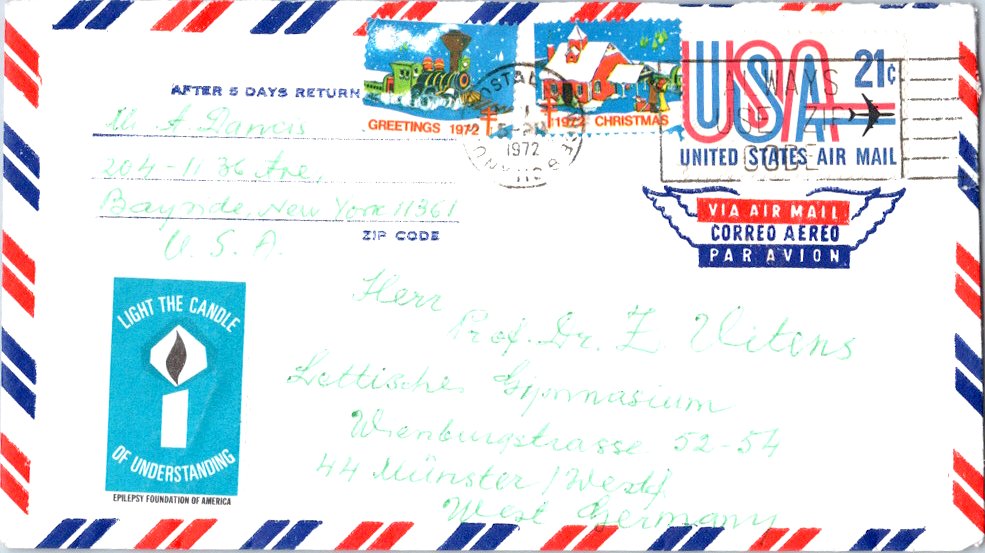 AFTER 5 DAYS RETURN
204-11 36 Ave,
Bayside, New York 11361
U. S. A.
ZIP CODE
GREETINGS 1972
1972 CHRISTMAS
1972
USA
21¢
UNITED STATES AIR MAIL
ALWAYS
USE ZIP
CODE
VIA AIR MAIL
CORREO AEREO
PAR AVION
LIGHT THE CANDLE
OF UNDERSTANDING
EPILEPSY FOUNDATION OF AMERICA
Herr
Prof. Dr. Z. Vitens
Lettisches Gymnasium
Wienburgstrasse 52-54
44 Münster/Westf
West Germany